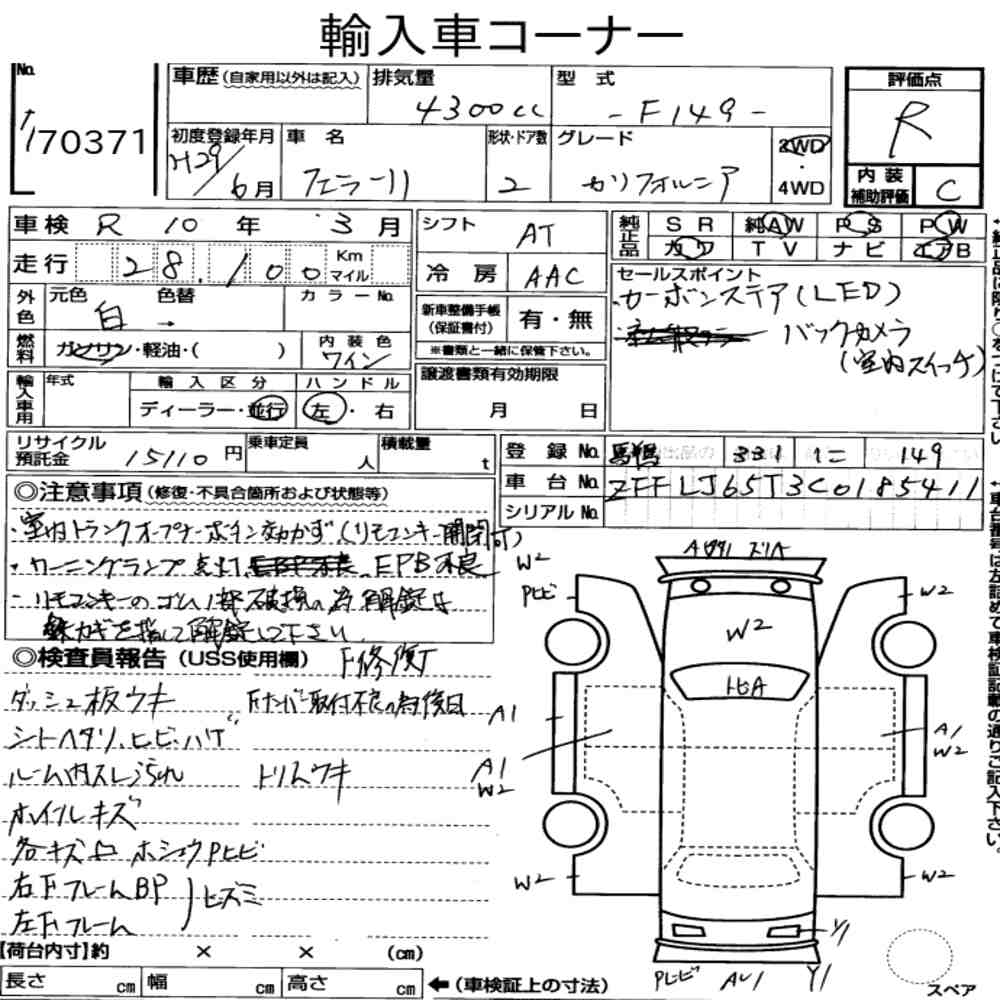 輸入車コーナー
No.
70371
車歴(自家用以外は記入)
排気量
4300cc
型式
-F149-
評価点
R
初度登録年月
H29/6月
車名
フェラーリ
形状・ドア数
2
グレード
カリフォルニア
2WD
・
4WD
内装
補助評価
C
車検 R 10年 3月
シフト
AT
純正品
SR
純AW
PS
PW
カワ
TV
ナビ
エアB
走行
28,100
Km
マイル
冷房
AAC
セールスポイント
カーボンステア(LED)
バックカメラ
(室内スイッチ)
外色
元色
白
→
色替
カラーNo.
新車整備手帳
(保証書付)
有・無
※書類と一緒に保管下さい。
燃料
ガソリン・軽油・( )
内装色
ワイン
譲渡書類有効期限
月 日
輸入車用
年式
輸入区分
ディーラー・並行
ハンドル
左・右
リサイクル
預託金
15110円
乗車定員
人
積載量
t
登録No.
331
149
車台No.
ZFFLJ65T3C0185411
シリアルNo.
◎注意事項(修復・不具合箇所および状態等)
・室内トランクオープナーボタン効かず(リモコンキー開閉可)
・ワーニングランプ点灯 EPB不良
・リモコンキーのゴム1部破損の為解錠は
カギを指して解錠して下さい
◎検査員報告(USS使用欄)
F修復
ダッシュ板ウキ
Fナンバー取付不良の為後日
シートヘタリ、ヒビ、ハゲ
ルーム内スレ汚れ
トリムウキ
ホイルキズ
各キズ凹 ホシュウPヒビ
右下フレームBP
左下フレーム
ヒズミ
【荷台内寸】約 × × (cm)
長さ cm
幅 cm
高さ cm
←(車検証上の寸法)
W2
Pヒビ
W2
W2
トビA
A1
A1
W2
A1
W2
W2
W2
Y1
Pヒビ
AU1
Y1
スペア